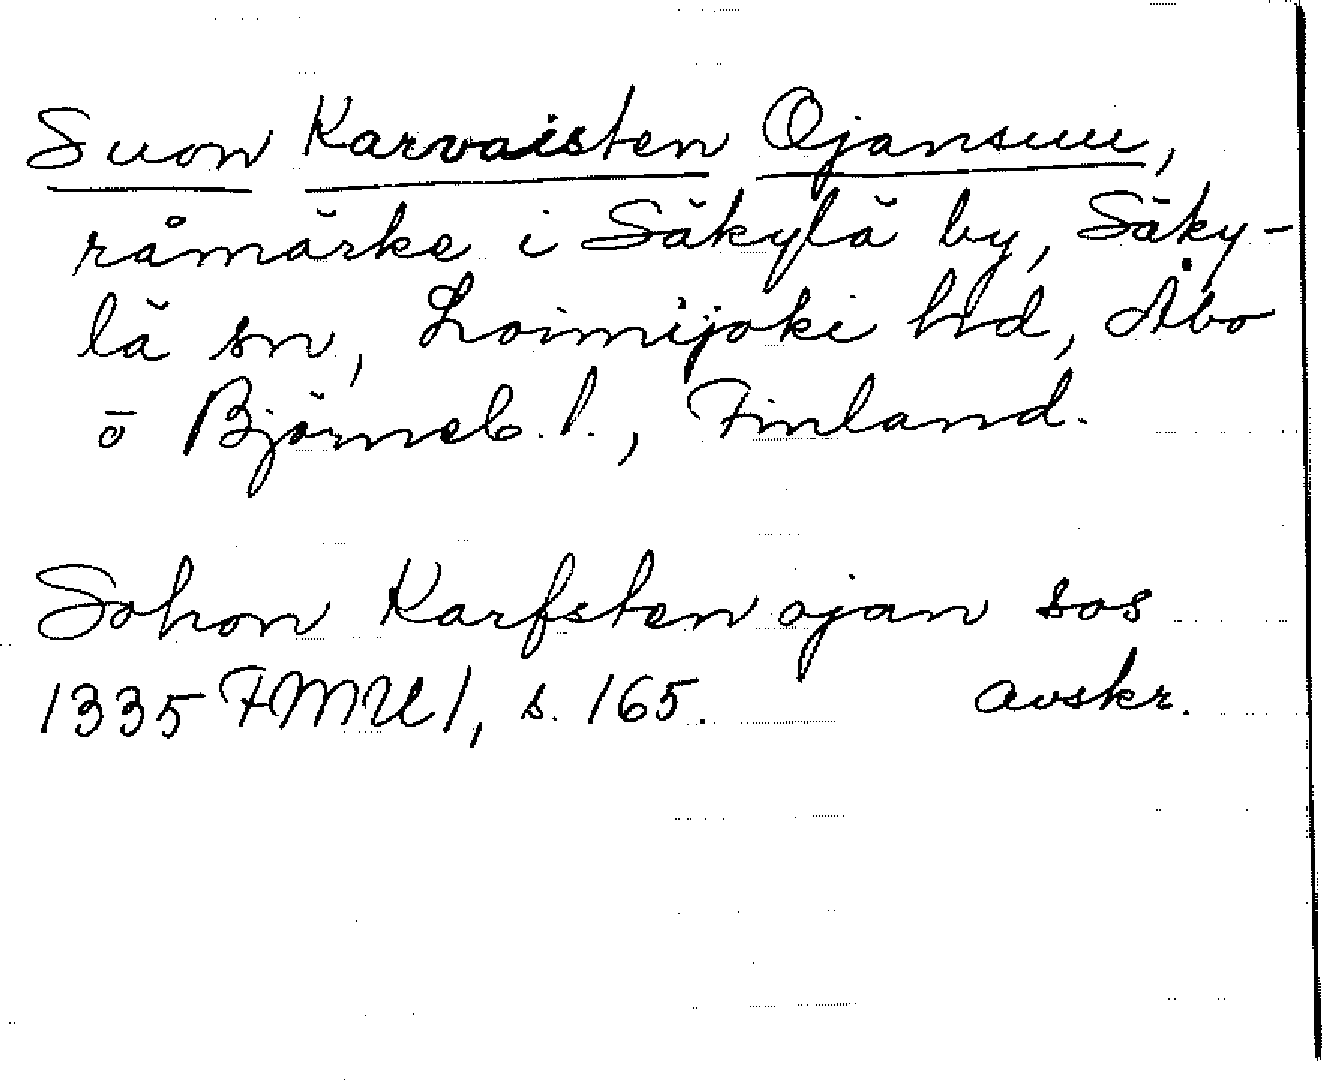 Suon Karvaisten Ojansuu,
råmärke i Säkylä by, Säky-
lä sn, Loimijoki hd, Åbo
o Björneb. l., Finland.
Sohon Karfsten ojan sos
1335 FMU 1, s. 165. avskr.